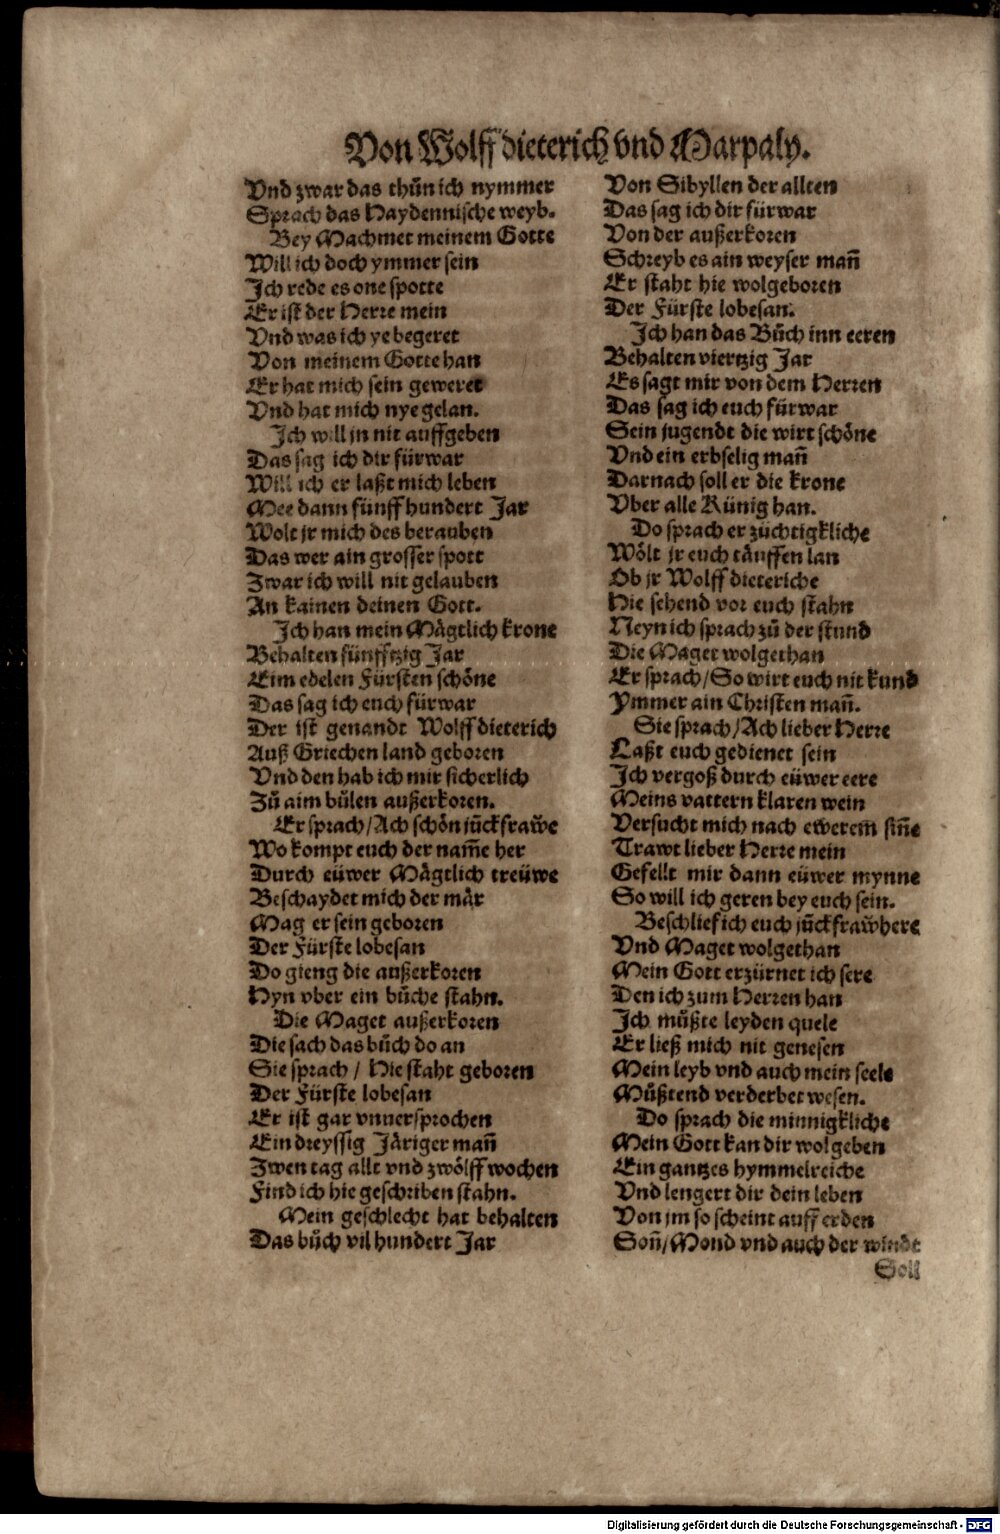 Von Wolff dieterich vnd Marpaly.
Vnd zwar das thůn ich nymmer
Sprach das Haydennische weyb.
Bey Machmet meinem Gotte
Will ich doch ymmer sein
Ich rede es one spotte
Er ist der Herre mein
Vnd was ich ye begeret
Von meinem Gotte han
Er hat mich sein geweret
Vnd hat mich nye gelan.
Ich will jn nit auffgeben
Das sag ich dir fürwar
Will ich er laßt mich leben
Mee dann fünff hundert Jar
Wolt jr mich des berauben
Das wer ain grosser spott
Zwar ich will nit gelauben
An kainen deinen Gott.
Ich han mein Mägtlich krone
Behalten fünfftzig Jar
Eim edelen Fürsten schöne
Das sag ich euch fürwar
Der ist genandt Wolff dieterich
Auß Griechen land geboren
Vnd den hab ich mir sicherlich
Zů aim bůlen außerkoren.
Er sprach/Ach schön jůckfraẅe
Wo kompt euch der nam̃e her
Durch eüwer Mägtlich treüwe
Beschaydet mich der mär
Mag er sein geboren
Der Fürste lobesan
Do gieng die außerkoren
Hyn vber ein bůche stahn.
Die Maget außerkoren
Die sach das bůch do an
Sie sprach / Hie staht geboren
Der Fürste lobesan
Er ist gar vnuersprochen
Ein dreyssig Järiger man̄
Zwen tag allt vnd zwölff wochen
Find ich hie geschriben stahn.
Mein geschlecht hat behalten
Das bůch vil hundert Jar
Von Sibyllen der allten
Das sag ich dir fürwar
Von der außerkoren
Schreyb es ain weyser man̄
Er staht hie wolgeboren
Der Fürste lobesan.
Ich han das Bůch inn eeren
Behalten viertzig Jar
Es sagt mir von dem Herren
Das sag ich euch fürwar
Sein jugendt die wirt schöne
Vnd ein erbselig man̄
Darnach soll er die krone
Vber alle Künig han.
Do sprach er züchtigkliche
Wölt jr euch täuffen lan
Ob jr Wolff dieteriche
Hie sehend vor euch stahn
Neyn ich sprach zů der stund
Die Maget wolgethan
Er sprach/So wirt euch nit kund
Ymmer ain Christen man̄.
Sie sprach/Ach lieber Herre
Laßt euch gedienet sein
Ich vergoß durch eüwer eere
Meins vattern klaren wein
Versucht mich nach ewerem̄ sin̄e
Trawt lieber Herre mein
Gefellt mir dann eüwer mynne
So will ich geren bey euch sein.
Beschlief ich euch jůckfraẅ here
Vnd Maget wolgethan
Mein Gott erzürnet ich sere
Den ich zum Herren han
Ich můßte leyden quele
Er ließ mich nit genesen
Mein leyb vnd auch mein seele
Můßtend verderbet wesen.
Do sprach die minnigkliche
Mein Gott kan dir wol geben
Ein gantzes hymmelreiche
Vnd lengert dir dein leben
Von jm so scheint auff erden
Son̄/Mond vnd auch der windt
Soll
Digitalisierung gefördert durch die Deutsche Forschungsgemeinschaft - DFG